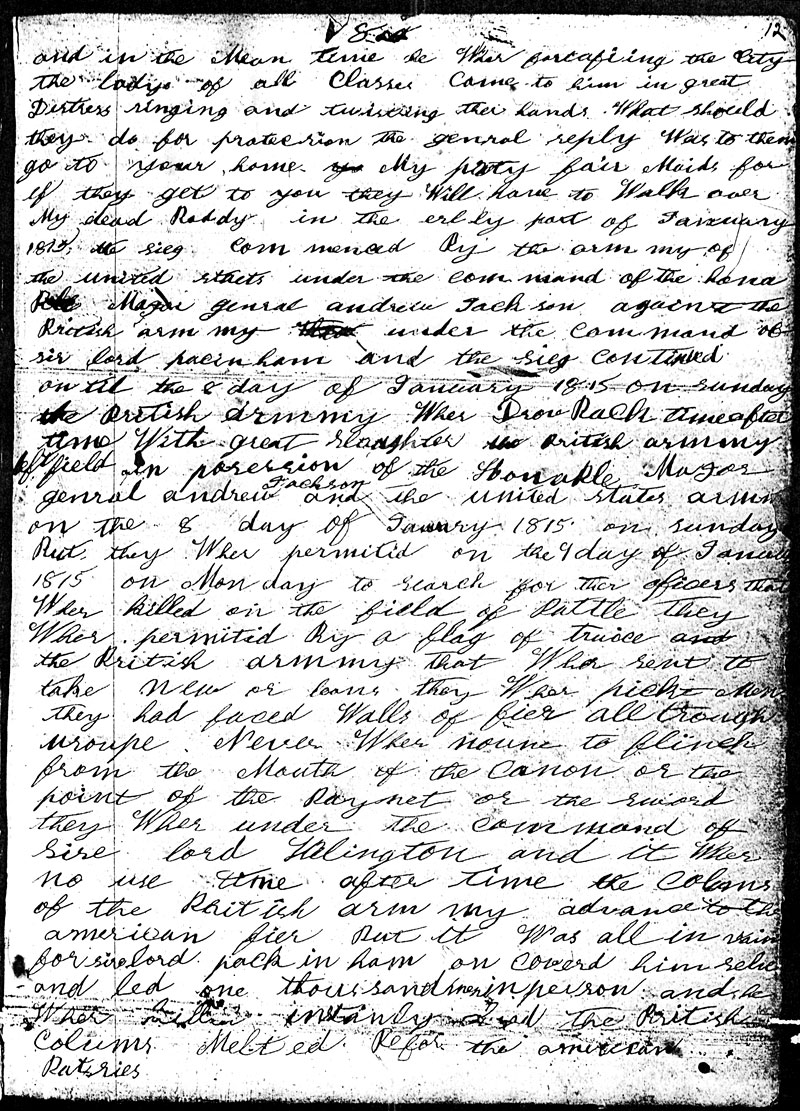 8
12
and in the Mean time he Wher fortafiing the City
the ladys of all Classes Come to him in great
Distress ringing and twisting ther hands What should
they do for protecsion the genral reply Was to them
go to your home My prity fair Maids for
if they get to you they Will have to Walk over
My dead Boddy in the erlly part of Januuary
1815 the sieg Com menced By the arm my of
the united staets under the com mand of the hona
Major genral andrew Jack son against the
British arm my under the command of
sir lord pacinham and the sieg continued
ontil the 8 day of January 1815 on sunday
the British Armmy Wher Drove Back time after
time With great slaughter the British armmy
left field in posession of the Honable Major
genral andrew Jackson and the united states army
on the 8 day of Janury 1815 on sunday
But they Wher permitid on the 9 day of Januar
1815 on Monday to search for ther oficers that
Wher killed on the field of Battle they
Wher permitid By a flag of truice and
the British armmy that Wher sent to
take New or leans they Wher pickt Men
they had faced Walls of fier all trough
uroupe Never Wher noune to flinch
from the Mouth of the Canon or the
point of the Baynet or the sword
they Wher under the command of
Sire lord Wilington and it Wher
no use time after time the Colums
of the British arm my advance to the
american fier But it Was all in vain
for sire lord pack in ham on coverd him selve
and led one thoussand men in person and he
Wher killed instanly and the British
Colums Melt ed Befor the american
Bateries